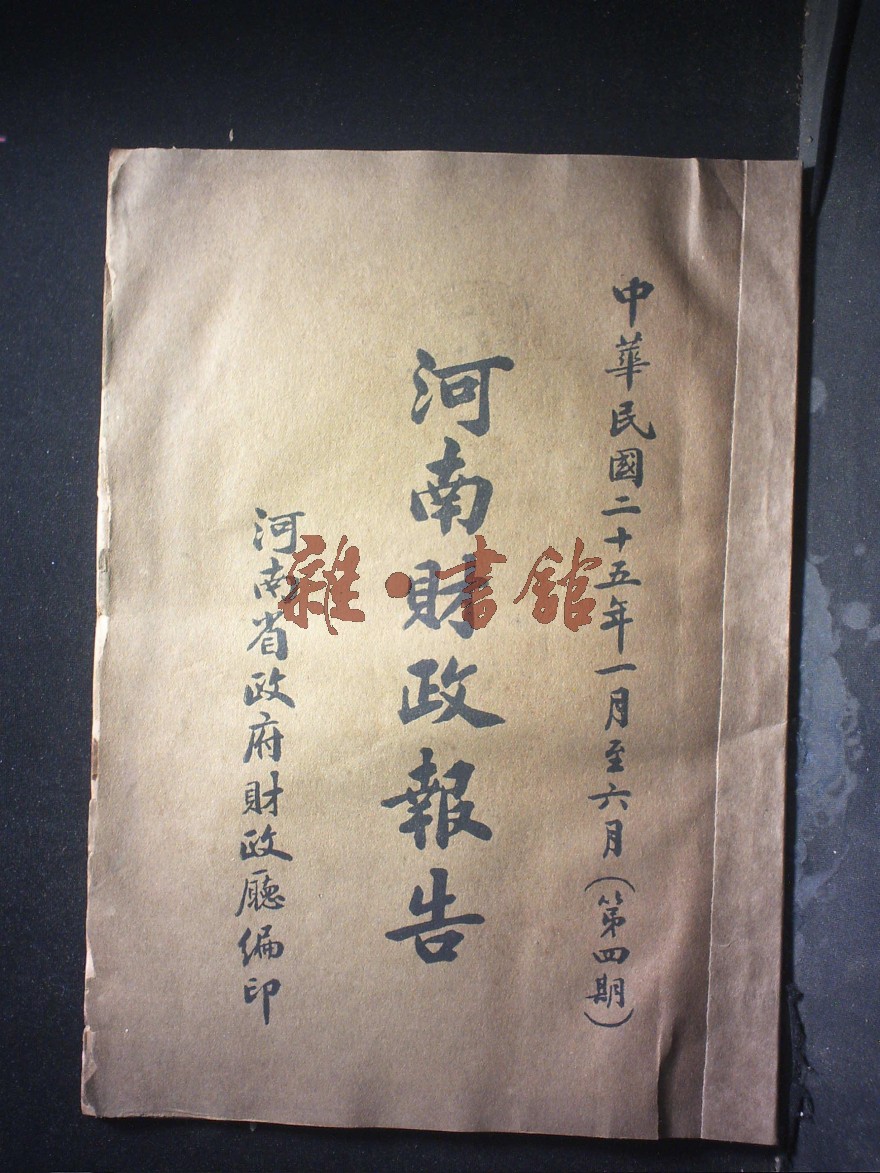 中華民國二十五年一月至六月（第四期）
河南財政報告
河南省政府財政廳編印
雜·書館